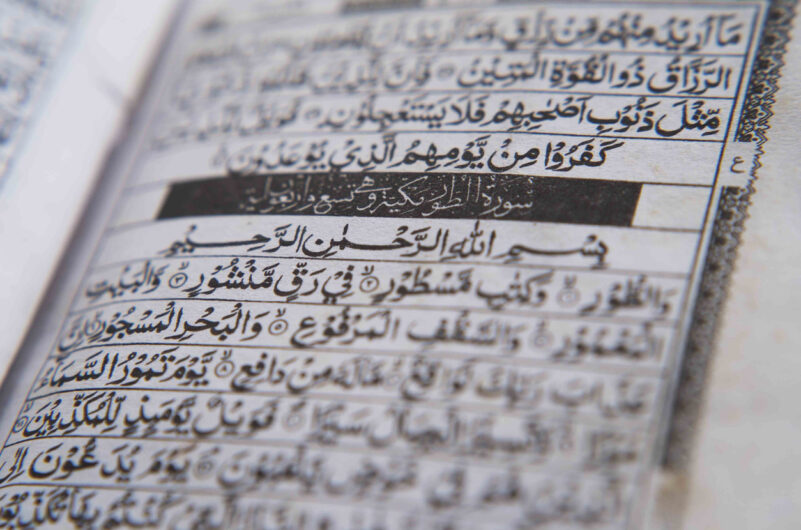 مَآ اُرِيْدُ مِنْهُمْ مِّنْ رِّزْقٍ وَّمَآ اُرِيْدُ اَنْ
الرَّزَّاقُ ذُو الْقُوَّةِ الْمَتِيْنُ فَاِنَّ لِلَّذِيْنَ ظَلَمُوْا
مِّثْلَ ذَنُوْبِ اَصْحٰبِهِمْ فَلَا يَسْتَعْجِلُوْنِ فَوَيْلٌ لِّلَّذِيْنَ
كَفَرُوْا مِنْ يَّوْمِهِمُ الَّذِيْ يُوْعَدُوْنَ
ع
سورة الطور مكية وهي تسع واربعون اية
بِسْمِ اللهِ الرَّحْمٰنِ الرَّحِيْمِ
وَالطُّوْرِ وَكِتٰبٍ مَّسْطُوْرٍ فِيْ رَقٍّ مَّنْشُوْرٍ وَّالْبَيْتِ
الْمَعْمُوْرِ وَالسَّقْفِ الْمَرْفُوْعِ وَالْبَحْرِ الْمَسْجُوْرِ اِنَّ
عَذَابَ رَبِّكَ لَوَاقِعٌ مَّا لَهٗ مِنْ دَافِعٍ يَّوْمَ تَمُوْرُ السَّمَآءُ
مَوْرًا وَّتَسِيْرُ الْجِبَالُ سَيْرًا فَوَيْلٌ يَّوْمَئِذٍ لِّلْمُكَذِّبِيْنَ
الَّذِيْنَ هُمْ فِيْ خَوْضٍ يَّلْعَبُوْنَ يَوْمَ يُدَعُّوْنَ اِلٰى
النَّارُ الَّتِيْ كُنْتُمْ بِهَا تُكَذِّبُوْنَ